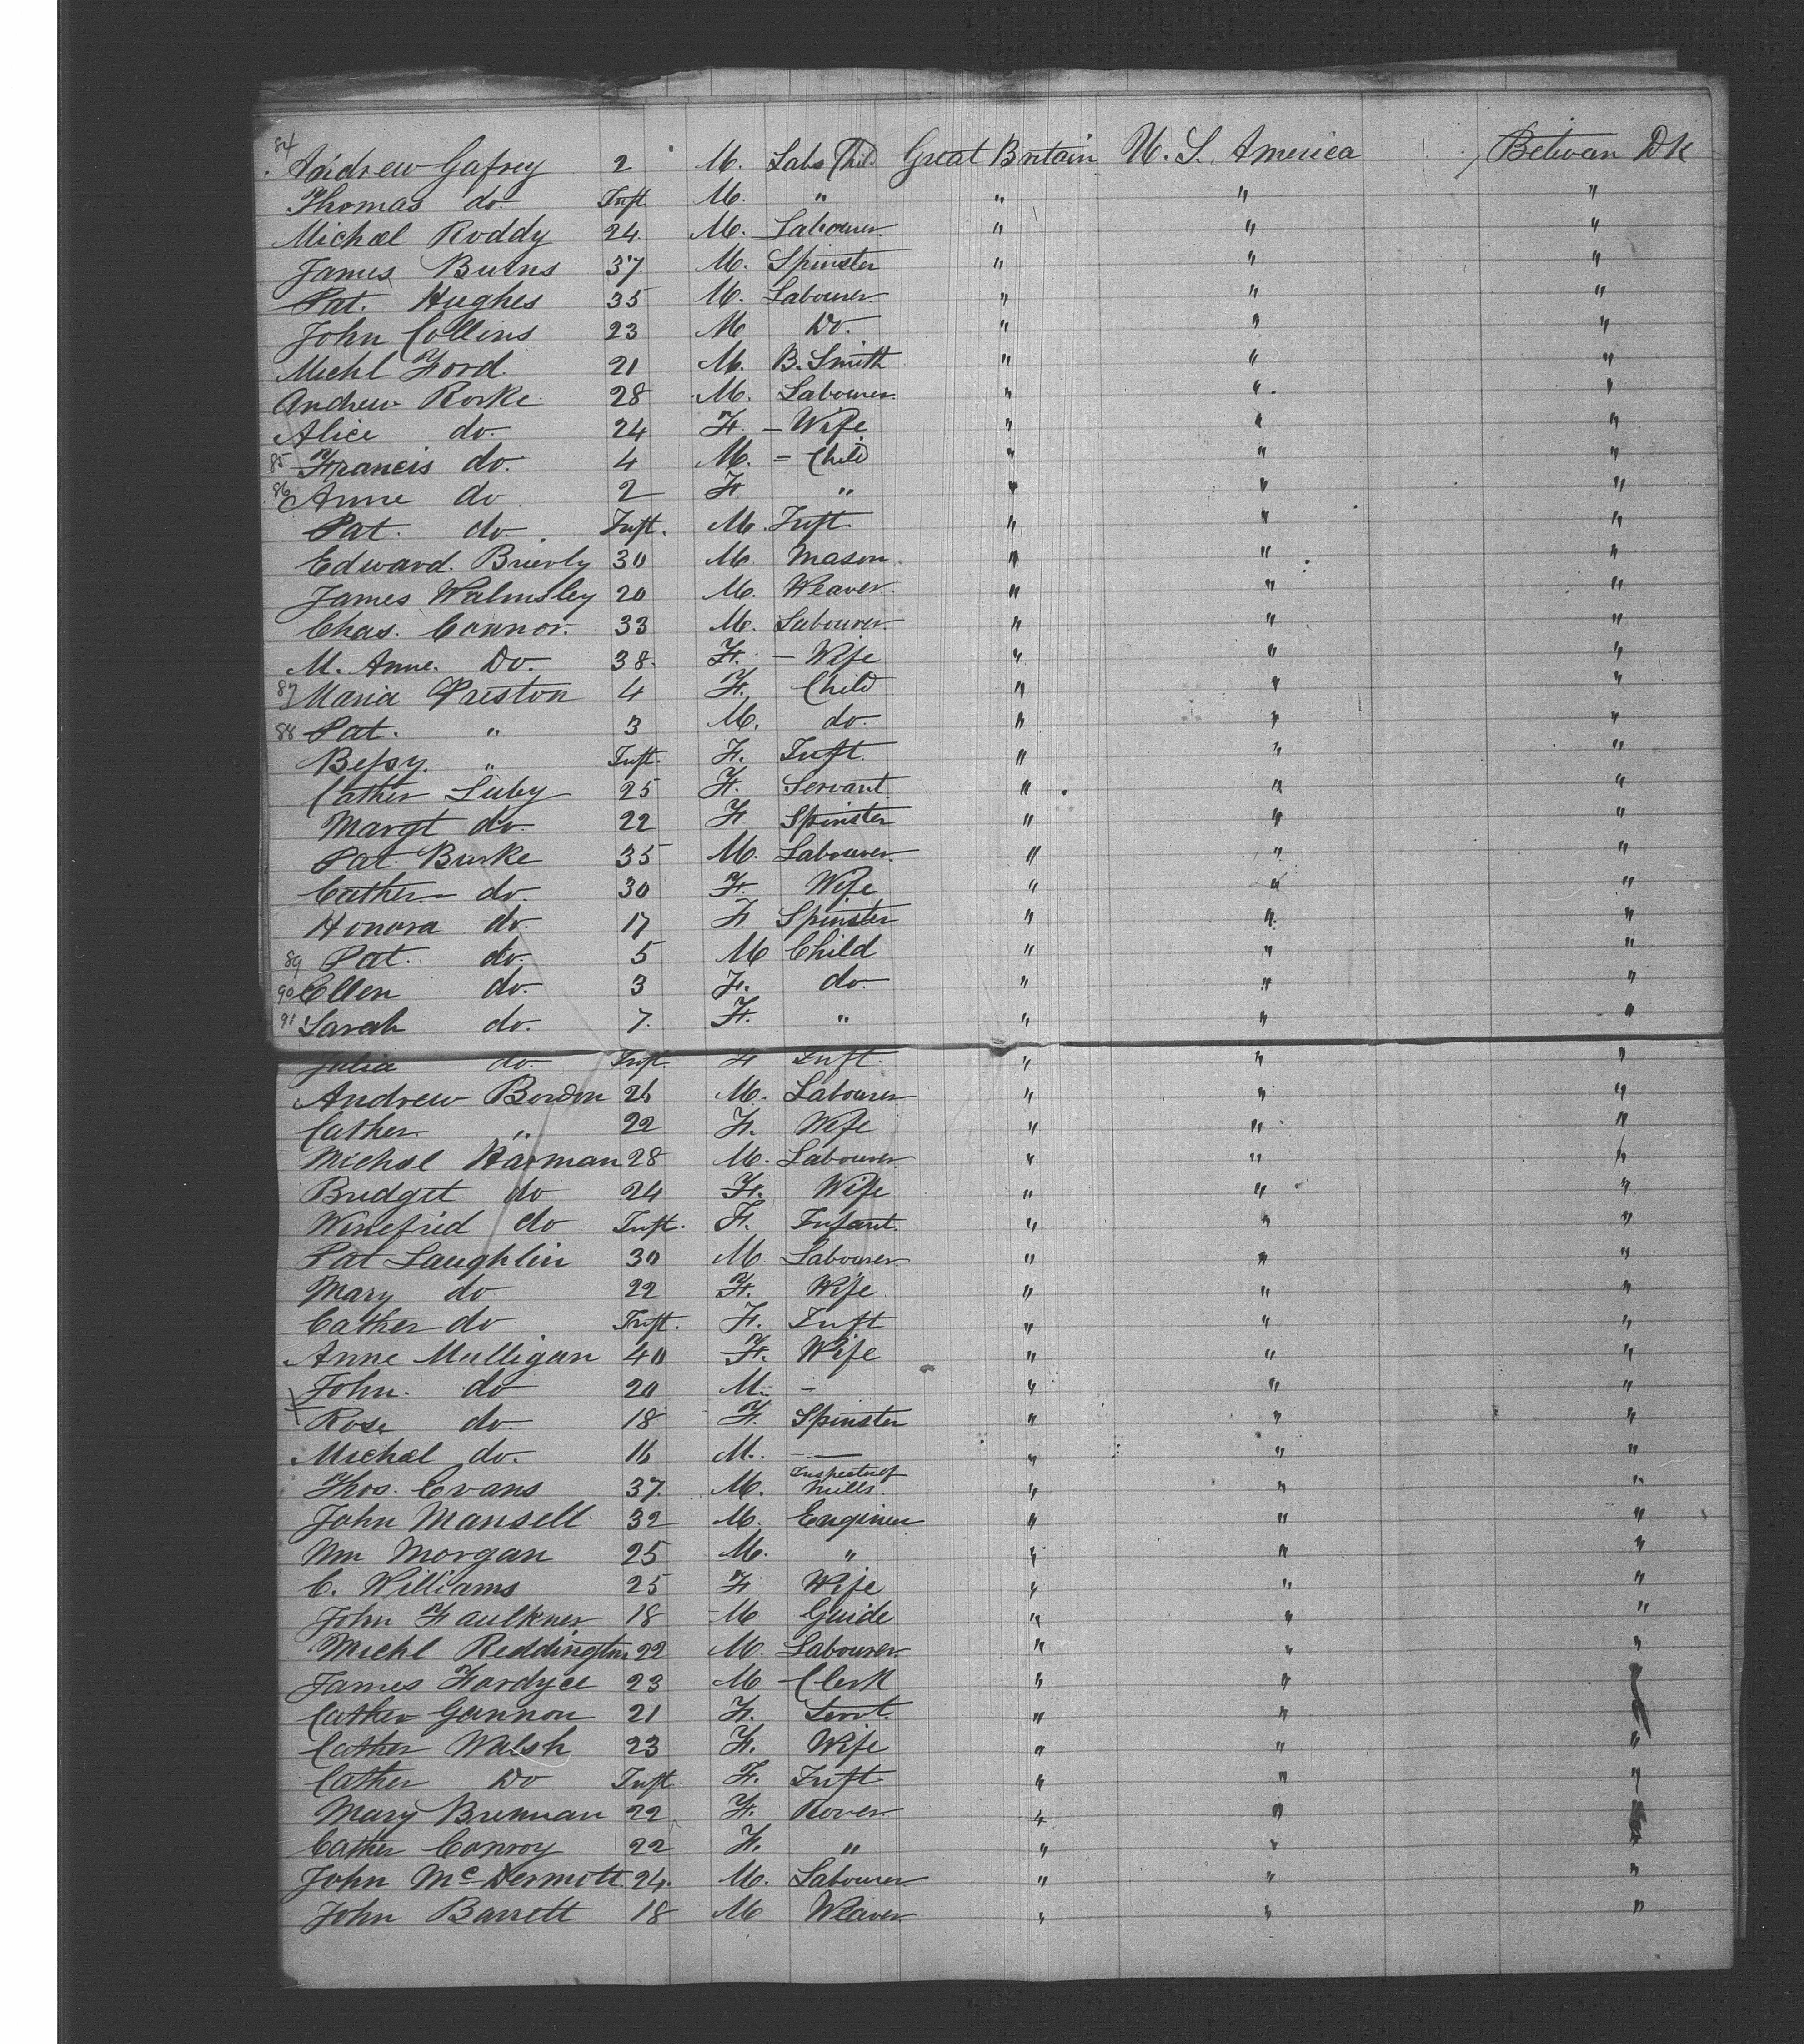 84 Andrew Gafrey 2 M. Labs Child Great Britain U. S. America Betwan Dk
Thomas do. Inft. M. " " " "
Michael Roddy 24. M. Labourer " " "
James Burns 37. M. Spinster " " "
Pat. Hughes 35 M. Labourer " " "
John Collins 23 M Do. " " "
Michl Ford. 21 M. B. Smith " " "
Andrew Rorke. 28 M. Labourer " " "
Alice do. 24 F. – Wife " " "
85 Francis do. 4 M. = Child " " "
86 Anne do 2 F " " " "
Pat. do. Inft. M. Inft. " " "
Edward. Brierly 30 M. Mason " " "
James Walmsley 20 M. Weaver. " " "
Chas. Connor. 33 M. Labourer " " "
M. Anne. Do. 38. F. – Wife " " "
87 Maria Preston 4 F. Child " " "
88 Pat. " 3 M. do. " " "
Bessy. " Inft. F. Inft. " " "
Cather Luby 25 F. Servant. " " "
Margt do. 22 F Spinster " " "
Pat. Burke 35 M. Labourer. " " "
Cather do. 30 F. Wife " " "
Honora do. 17 F Spinster " " "
89 Pat. do. 5 M Child " " "
90 Ellen do. 3 F. do. " " "
91 Sarah do. 7. F. " " " "
Julia do. Inft. F Inft. " " "
Andrew Bowdon 26 M. Labourer " " "
Cather. " 22 F. Wife " " "
Michael Harman 28 M. Labourer " " "
Bridget do 24 F. Wife " " "
Winefrid do Inft. F. Infant. " " "
Pat Laughlin 30 M. Labourer " " "
Mary do 22 F. Wife " " "
Cather do Inft. F. Inft " " "
Anne Mulligan 40 F. Wife " " "
John. do 20 M. – " " "
Rose do. 18 F. Spinster " " "
Michael do. 16 M. — " " "
Thos. Evans 37. M. Inspector of Mills. " " "
John Mansell 32 M. Engineer " " "
Wm Morgan 25 M. " " " "
C. Williams 25 F Wife " " "
John Faulkner 18 M Guide " " "
Michl Reddington 22 M. Labourer " " "
James Fordyce 23 M Clerk " "
Cather Gannon 21 F. Servt. " "
Cather Walsh 23 F. Wife " " "
Cather Do Inft F. Inft. " " "
Mary Brennan 22 F. Rover " "
Cather Conroy 22 F. " " " "
John McDermott 24. M. Labourer " " "
John Barrett 18 M Weaver " " "